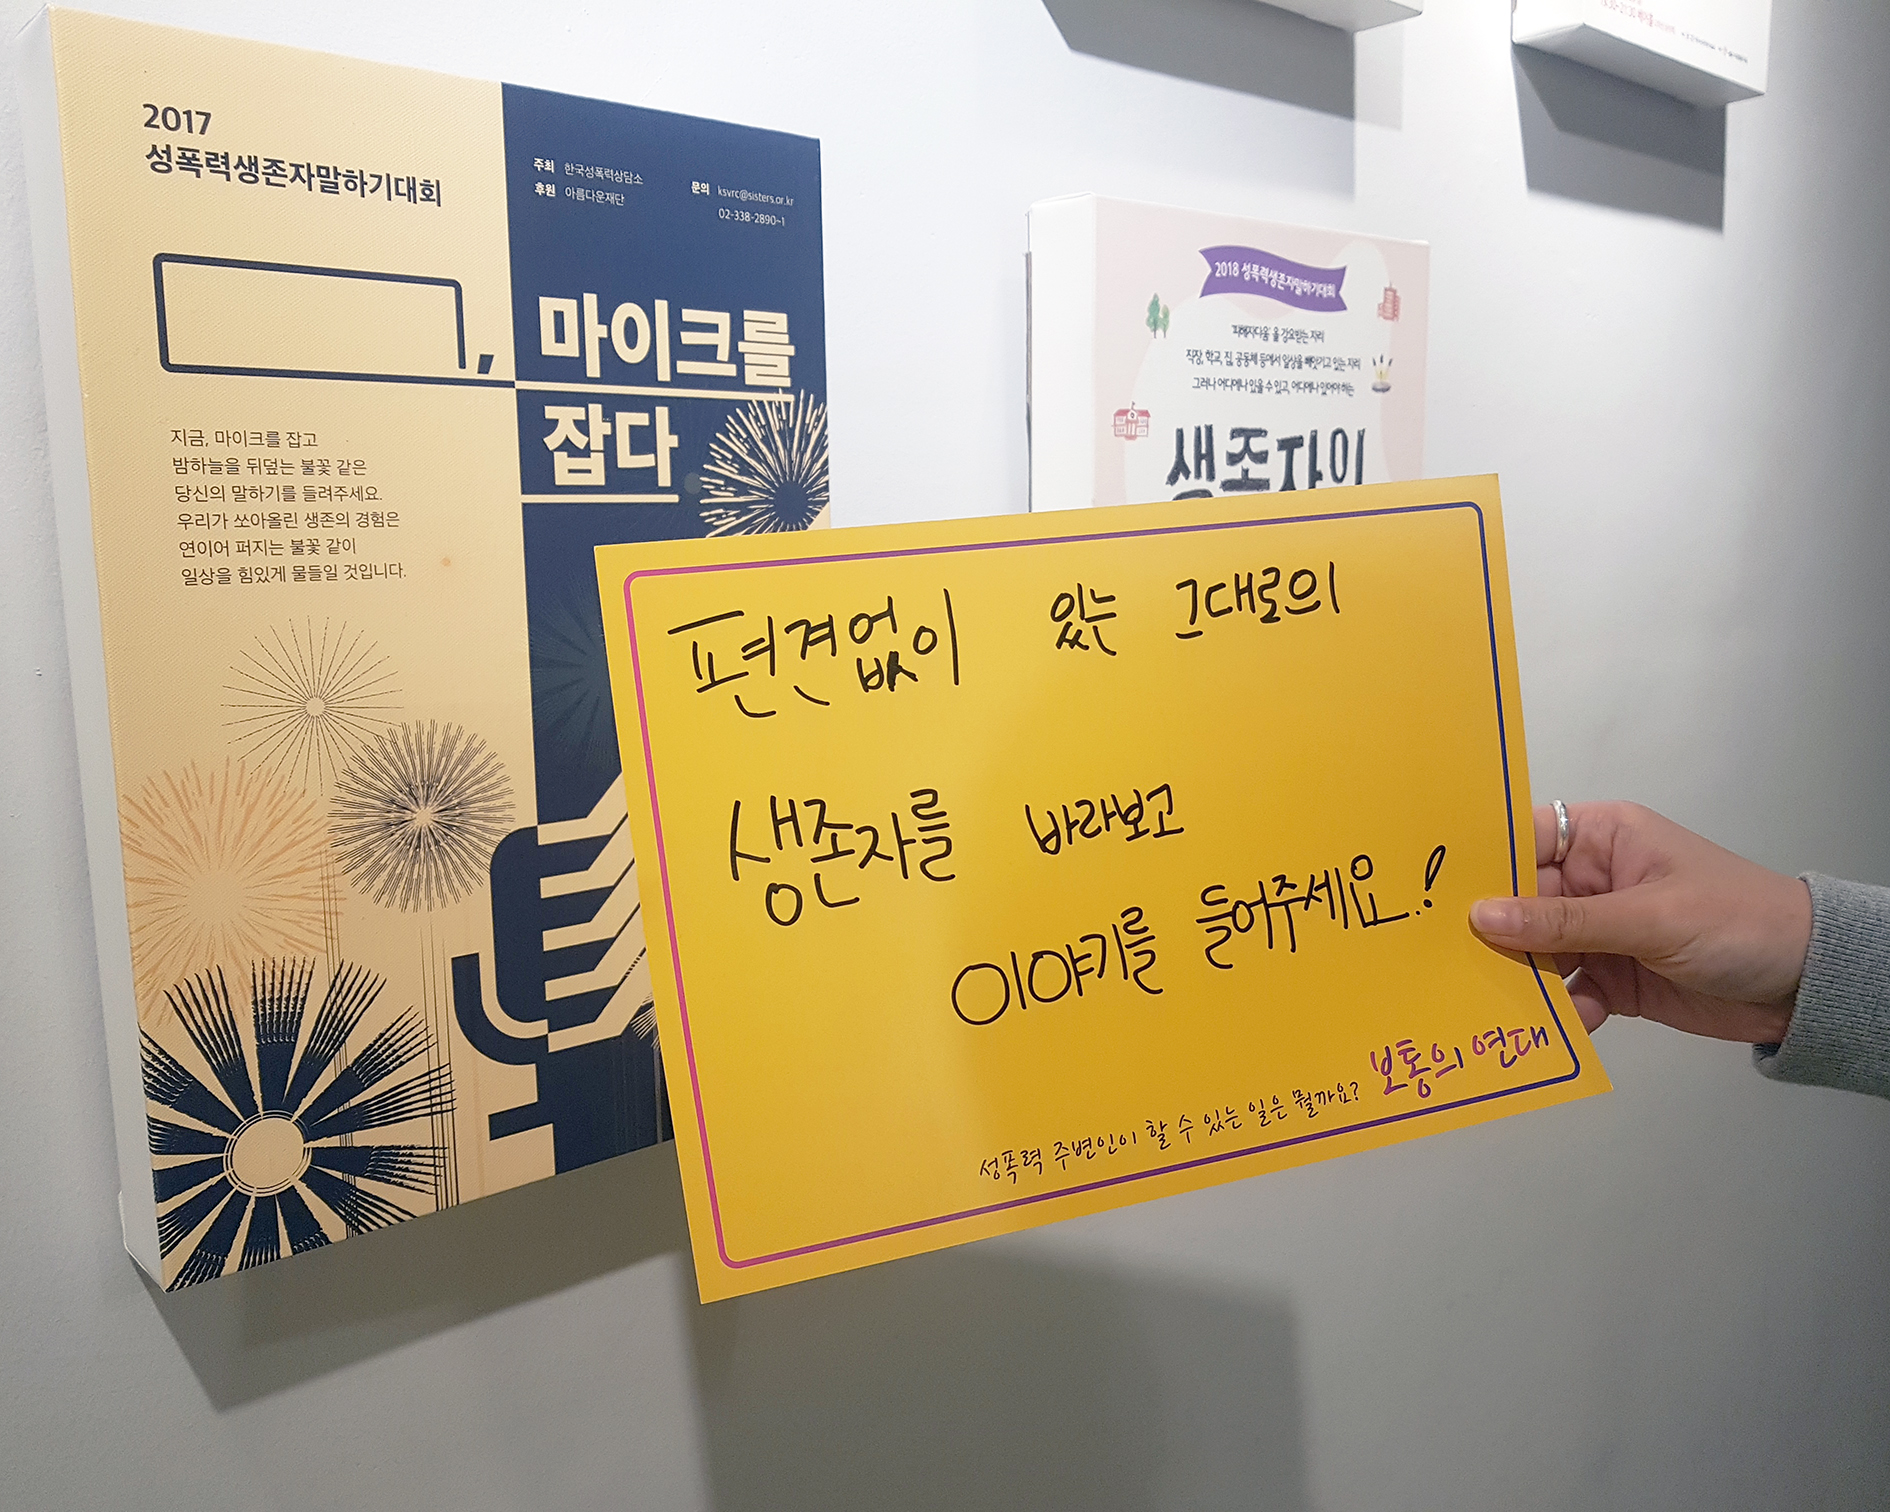 2017
성폭력생존자말하기대회
주최 한국성폭력상담소
후원 아름다운재단
문의 ksvrc@sisters.or.kr
02-338-2890~1
, 마이크를
잡다
지금, 마이크를 잡고
밤하늘을 뒤덮는 불꽃 같은
당신의 말하기를 들려주세요.
우리가 쏘아올린 생존의 경험은
연이어 퍼지는 불꽃 같이
일상을 힘있게 물들일 것입니다.
2018 성폭력생존자말하기대회
'피해자다움'을 강요받는 자리
직장, 학교, 집, 공동체 등에서 일상을 빼앗기고 있는 자리
그러나 어디에나 있을 수 있고, 어디에나 있어야 하는
생존자의
편견없이 있는 그대로의
생존자를 바라보고
이야기를 들어주세요..!
성폭력 주변인이 할 수 있는 일은 뭘까요? 보통의 연대